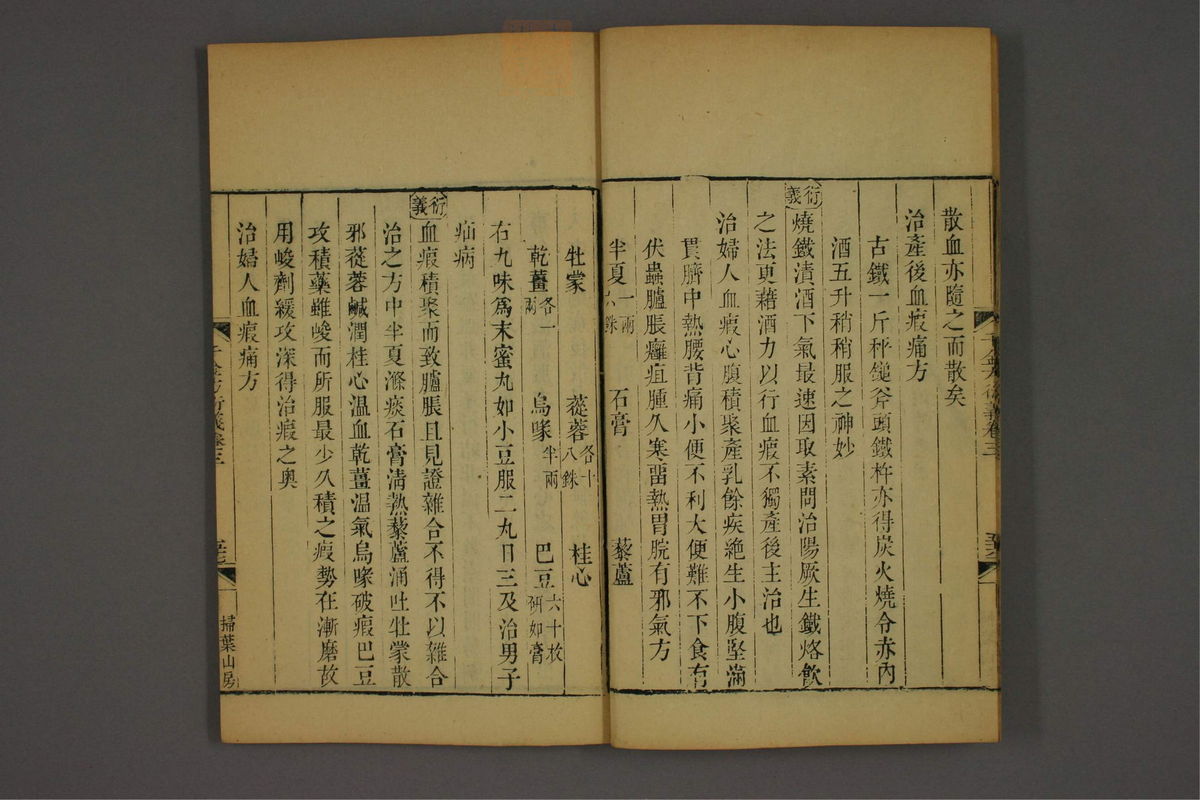 散血亦隨之而散矣
治產後血瘕痛方
古鐵一斤秤鎚斧頭鐵杵亦得炭火燒令赤內
酒五升稍稍服之神妙
衍義
燒鐵漬酒下氣最速因取素問治陽厥生鐵烙飲
之法更藉酒力以行血瘕不獨產後主治也
治婦人血瘕心腹積聚產乳餘疾絶生小腹堅滿
貫臍中熱腰背痛小便不利大便難不下食有
伏蟲臚脹癰疽腫久寒畱熱胃脘有邪氣方
半夏一兩六銖 石膏 藜蘆
牡蒙 蓯蓉各十八銖 桂心
乾薑各一兩 烏喙半兩 巴豆六十枚研如膏
右九味爲末蜜丸如小豆服二丸日三及治男子
疝病
衍義
血瘕積聚而致臚脹且見證雜合不得不以雜合
治之方中半夏滌痰石膏清熱藜蘆涌吐牡蒙散
邪蓯蓉鹹潤桂心温血乾薑温氣烏喙破瘕巴豆
攻積藥雖峻而所服最少久積之瘕勢在漸磨故
用峻劑緩攻深得治瘕之奧
治婦人血瘕痛方
千金方衍義卷三
掃葉山房